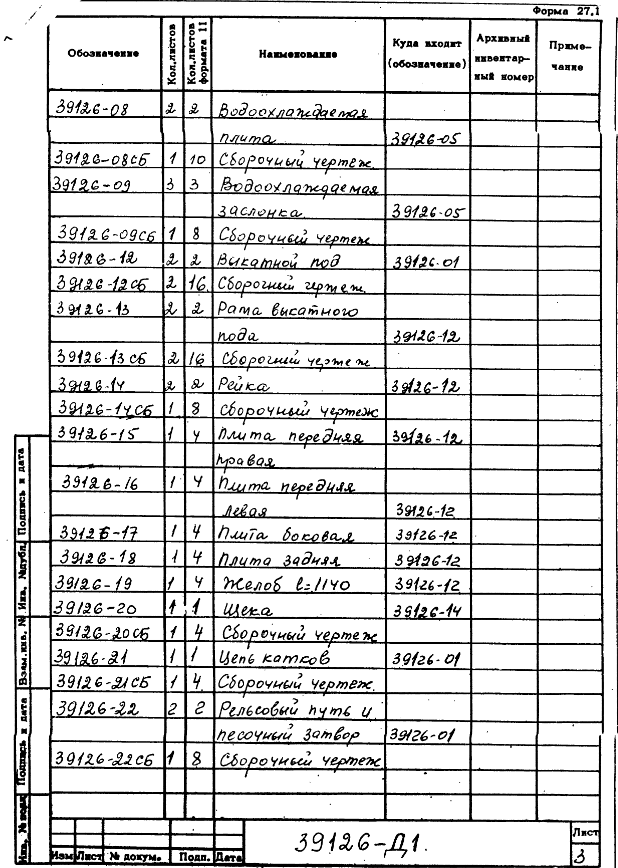 Форма 27,1
Обозначение Кол.листов Кол.листов формата 11 Наименование Куда входит (обозначение) Архивный инвентар-ный номер Приме-чание
39126-08 2 2 Водоохлаждаемая
плита 39126-05
39126-08СБ 1 10 Сборочный чертеж
39126-09 3 3 Водоохлаждаемая
заслонка 39126-05
39126-09СБ 1 8 Сборочный чертеж
39126-12 2 2 Выкатной под 39126-01
39126-12СБ 2 16 Сборочный чертеж
39126-13 2 2 Рама выкатного
пода 39126-12
39126-13СБ 2 16 Сборочный чертеж
39126-14 2 2 Рейка 39126-12
39126-14СБ 1 8 Сборочный чертеж
39126-15 1 4 Плита передняя 39126-12
правая
39126-16 1 4 Плита передняя
левая 39126-12
39126-17 1 4 Плита боковая 39126-12
39126-18 1 4 Плита задняя 39126-12
39126-19 1 4 Желоб l=1140 39126-12
39126-20 1 1 Щека 39126-14
39126-20СБ 1 4 Сборочный чертеж
39126-21 1 1 Цепь катков 39126-01
39126-21СБ 1 4 Сборочный чертеж
39126-22 2 2 Рельсовый путь и
песочный затвор 39126-01
39126-22СБ 1 8 Сборочный чертеж
Подпись и дата
Инв. № дубл.
Взам.инв. №
Подпись и дата
Инв. № подл
39126-Д1.
Изм Лист № докум. Подп. Дата
Лист
3